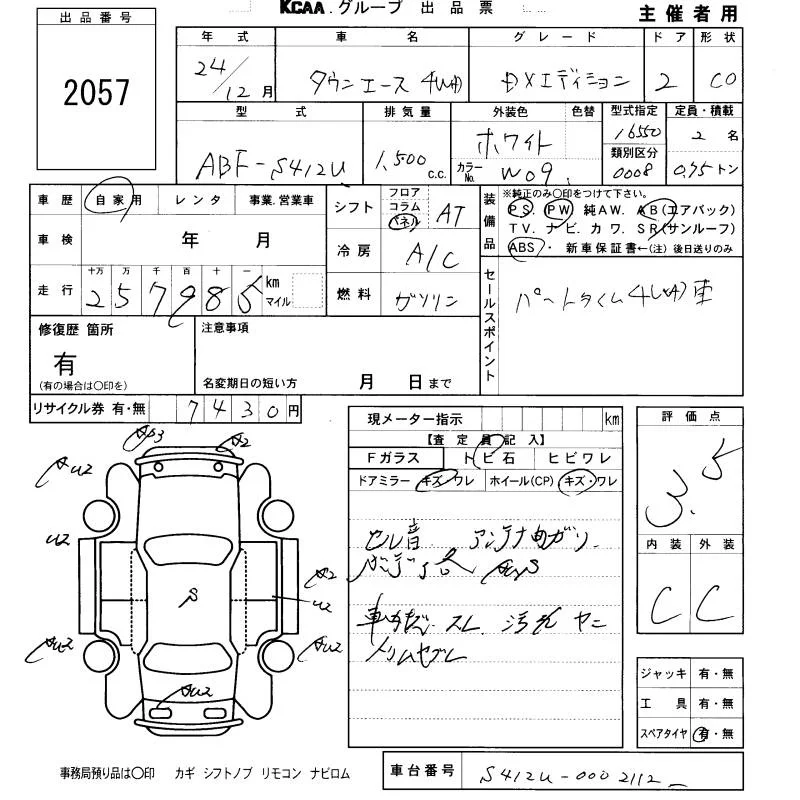 KCAA.グループ 出品票
主催者用
出品番号
2057
年式 車名 グレード ドア 形状
24/12月 タウンエース 4WD DXエディション 2 CO
型式 排気量 外装色 色替 型式指定 定員・積載
ABF-S412U 1,500 c.c. ホワイト 16550 2名
カラーNo. W09 類別区分 0008 0.75トン
車歴 自家用 レンタ 事業.営業車
シフト フロア コラム パネル AT
装備品 ※純正のみ○印をつけて下さい。
PS. PW 純AW. AB(エアバック)
TV. ナビ. カワ. SR(サンルーフ)
ABS・ 新車保証書←(注)後日送りのみ
車検 年 月
冷房 A/C
走行 十万 万 千 百 十 一
257985 km マイル
燃料 ガソリン
セールスポイント
パートタイム4WD車
修復歴 箇所
有
(有の場合は○印を)
注意事項
名変期日の短い方 月 日まで
リサイクル券 有・無 7430円
現メーター指示 km
【査定員記入】
Fガラス トビ石 ヒビワレ
ドアミラー キズ・ワレ ホイール(CP) キズ・ワレ
評価点
3.5
内装 外装
C C
A2
U2
U2
A2
U2
S
ベル音 アンテナ曲ガリ
ボンデ
スレ 汚れ ヤニ
ジャッキ 有・無
工具 有・無
スペアタイヤ 有・無
事務局預り品は○印 カギ シフトノブ リモコン ナビロム
車台番号 S412U-0002112